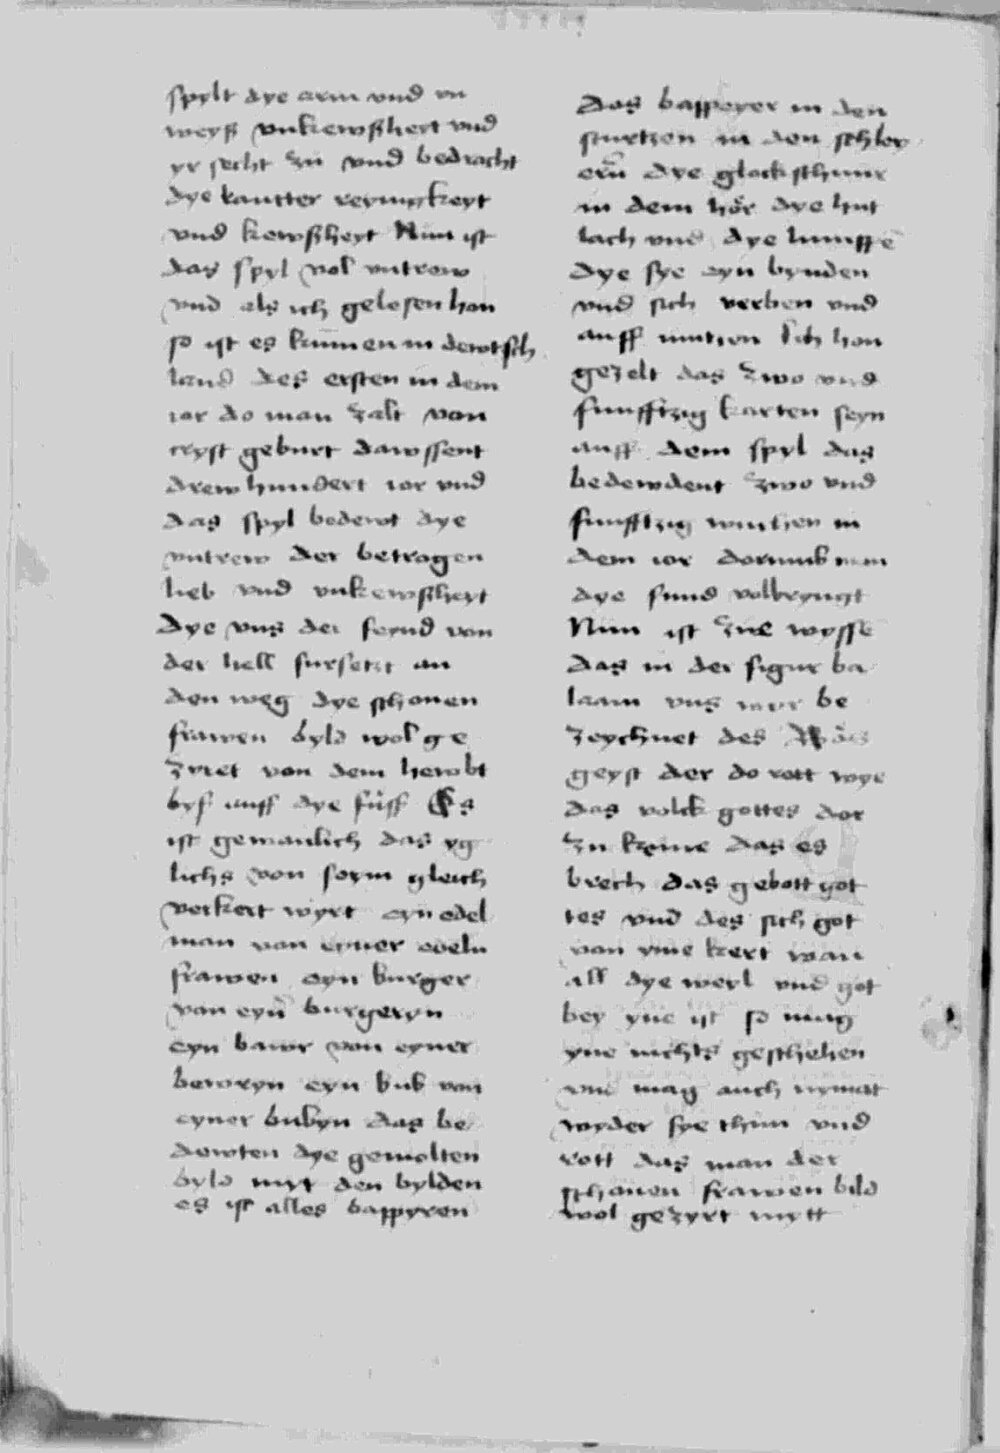 spylt dye arm vnd vn
weyß vnkewsheyt vnd
yr secht zu vnd bedracht
dye lautter reynigkeyt
vnd kewsheyt Nun ist
das spyl vol vntrew
vnd als ich gelesen hon
so ist es kumen in dewtsch
land des ersten in dem
ior do man zalt von
cryst geburt dawssent
drewhundert ior vnd
das spyl bedewt dye
vntrew der betrogen
lieb vnd vnkewsheyt
Dye vns der feynd von
der hell fursetzt an
den weg dye schonen
frawen byld wol ge
zyret von dem hewbt
byß auff dye fuß Es
ist gewonlich das yg
lichs von seym gleich
verkert wyrt eyn edel
man von eyner edeln
frawen eyn burger
von eyn̄ burgeryn
eyn bawr von eyner
bewryn eyn bub von
eyner bubyn das be
dewten dye gemolten
byld myt den bylden
es ist alles bappyren
Das bappeyer in den
sturtzen in den schley
ern̄ dye glocksthnur
in dem hor dye hut
lach vnd dye lumppē
dye sye eyn bynden
vnd sich verben vnd
auff mutzen Ich hon
gezelt das zwo vnd
funfftzig karten seyn
auff dem spyl das
bedewdent zwo vnd
funfftzig wuchen in
dem ior dorumb man
dye sund volbryngt
Nun ist zue wyssē
das in der figur ba
laam vns wyr be
zeychnet des böß
geyst der do rott wye
das volck gottes dor
zu kome das es
brech das gebott got
tes vnd des sich got
von yme kert wan
all dye weyl vnd got
bey yne ist so mag
yne nichts geschehen
vnd mag auch nymāt
wyder sye thun vnd
rott das man der
schonen frawen bild
wol gezyrt mytt